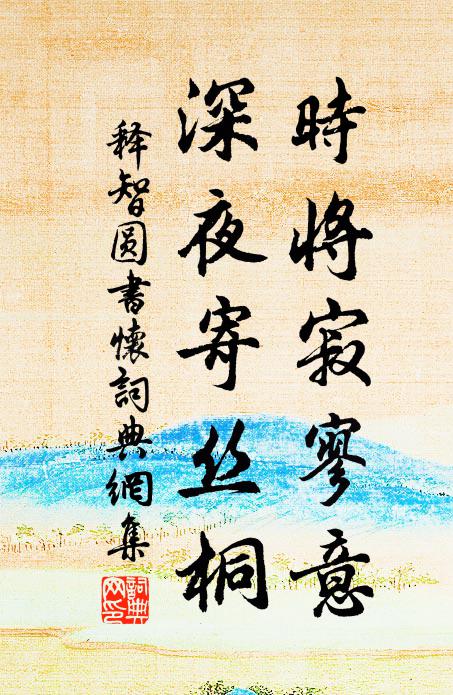 時將寂寥意
深夜寄丝桐
释智圆書懷詞典網集